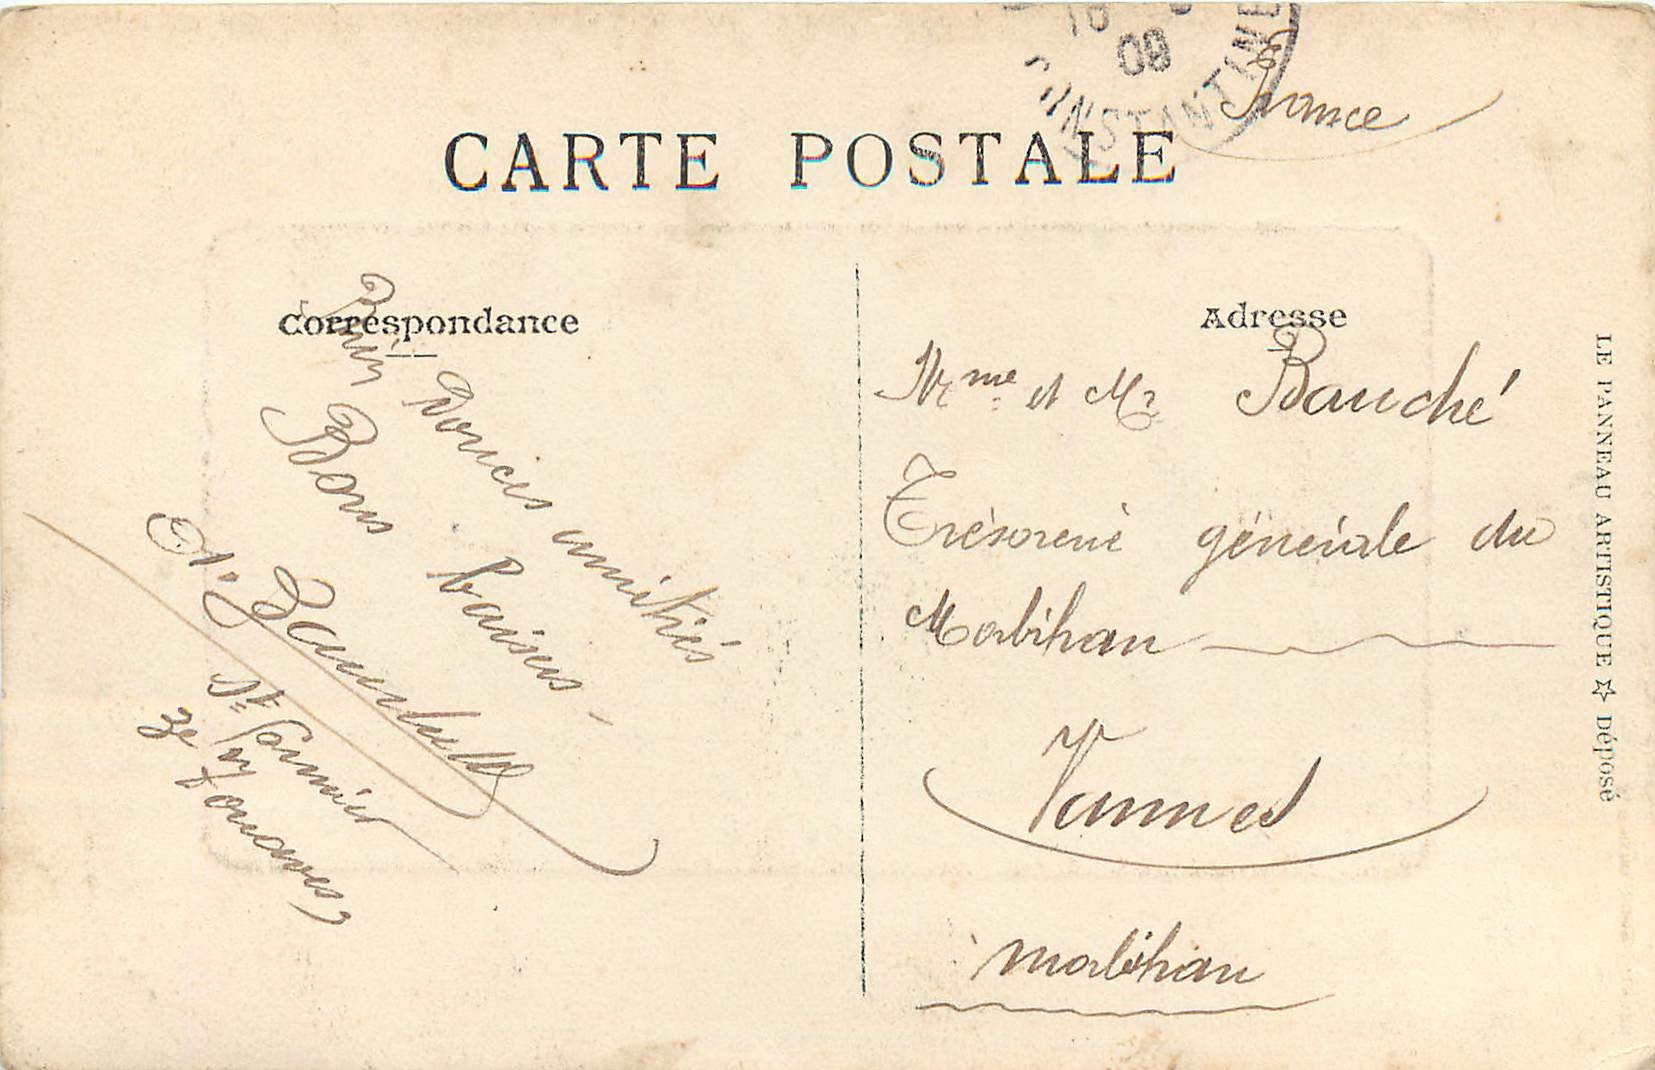 CARTE POSTALE
18
08
CONSTANTINE
France
Correspondance
Bien Douces amitiés
Bons baisers -
St.
3e Zouaves
Adresse
Mme. et Mr Bauché
Trésorerie générale du
Morbihan
Vannes
Morbihan
LE PANNEAU ARTISTIQUE ☆ Déposé